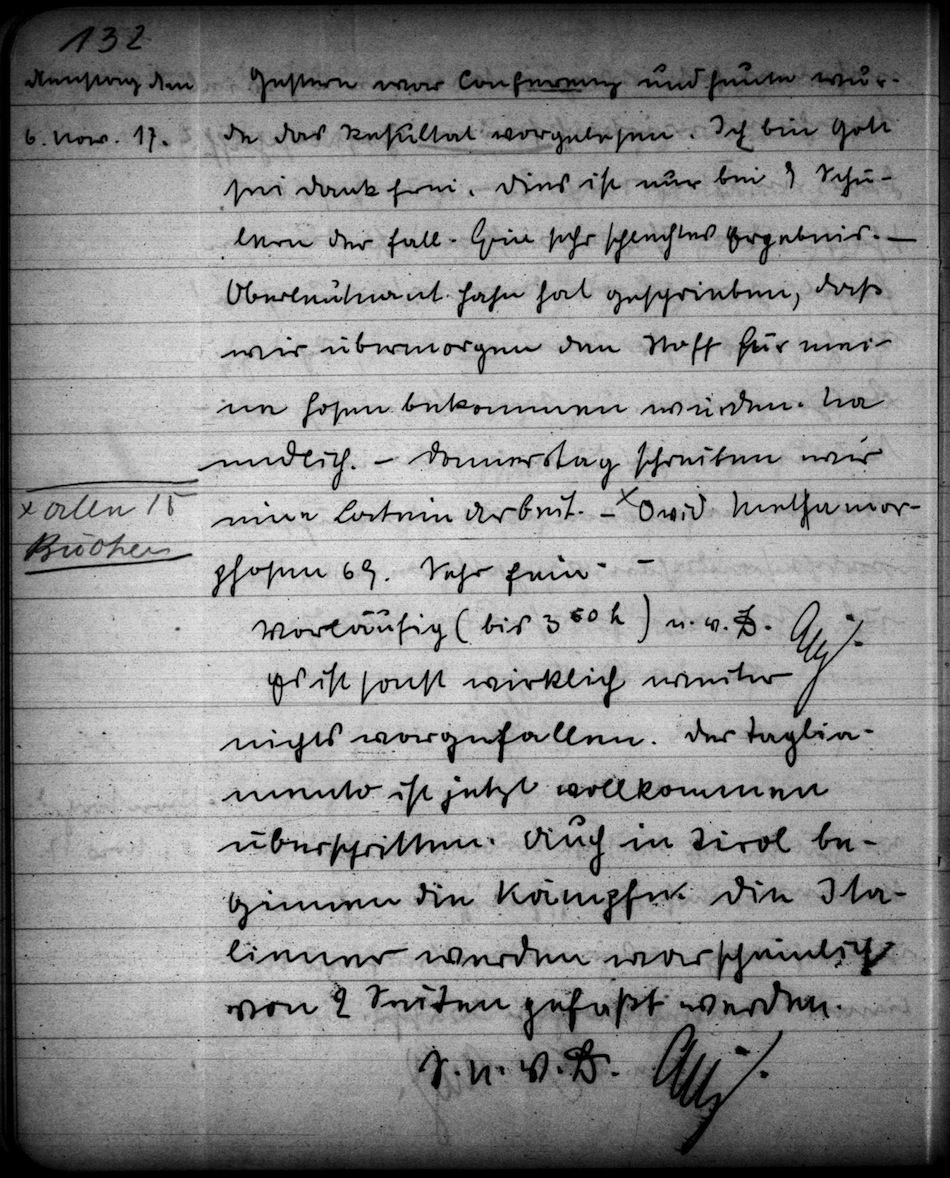 132
Dienstag den
6. Nov. 17.
Gestern war Conferenz und heute wur-
de das Resultat vorgelesen. Ich bin Gott
sei dank frei. Dies ist nur bei 9 Schü-
lern der Fall. Ein sehr schlechtes Ergebnis. —
Oberleutnant Hahn hat geschrieben, daß
wir übermorgen den Stoff für mei-
ne Hosen bekommen würden. Na
endlich. – Donnerstag schreiben wir
eine Lateinarbeit. – x Ovid Methamor-
x allen 15
Büchern
phosen 69. Sehr fein. –
Vorläufig (bis 3 50 h) n. v. B.
Es ist sonst wirklich weiter
nichts vorgefallen. Der Taglia-
mento ist jetzt vollkommen
überschritten. Auch in Tirol be-
ginnen die Kämpfe. Die Ita-
liener werden warscheinlich
von 2 Seiten gefaßt werden.
S. n. v. B.